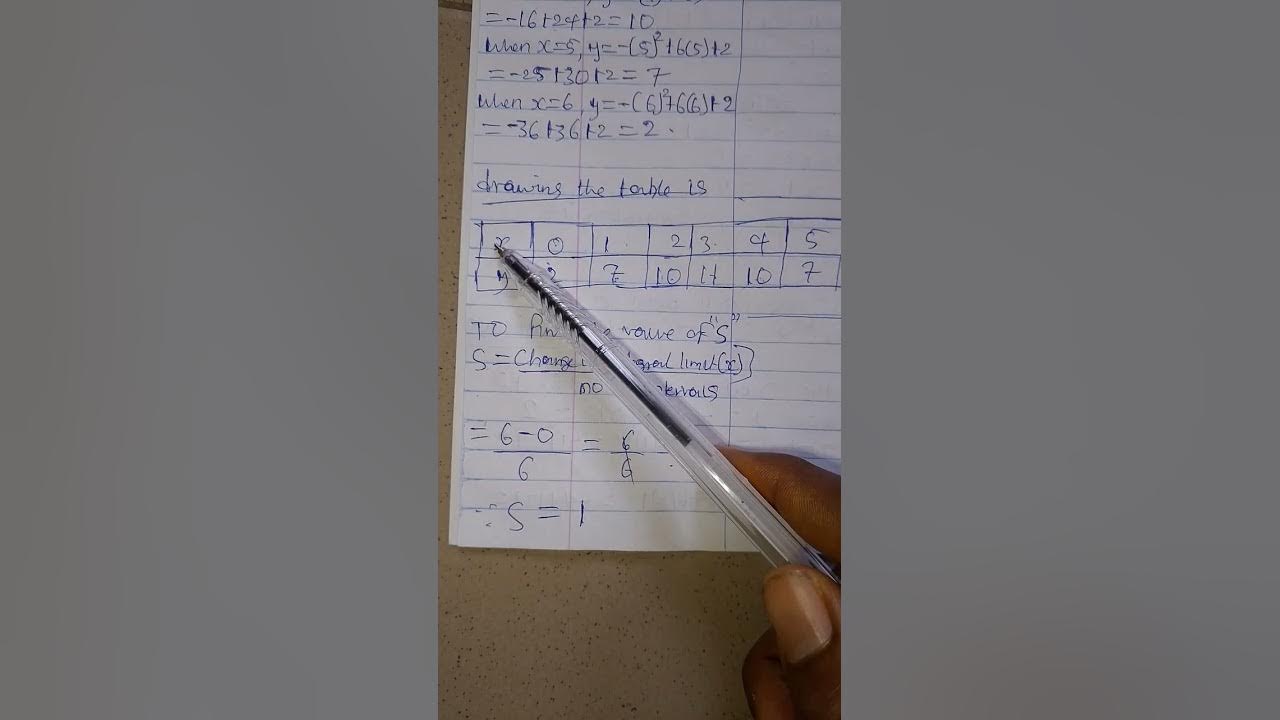 =-16+24+2=10
When x=5, y=-(5)²+6(5)+2
=-25+30+2=7
when x=6, y=-(6)²+6(6)+2
=-36+36+2=2.
drawing the table is
x 0 1. 2 3. 4 5
y 2 7 10 11 10 7
TO value of "S"
S = limit(x)}
no
= 6-0 = 6
6 6
∴ S = 1